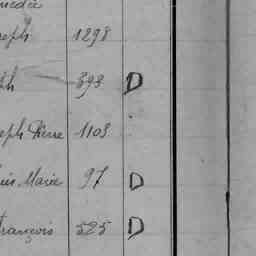 médée
seph 1298
ph 393 D
seph Pierre 1103
uis Marie 97 D
François 525 D